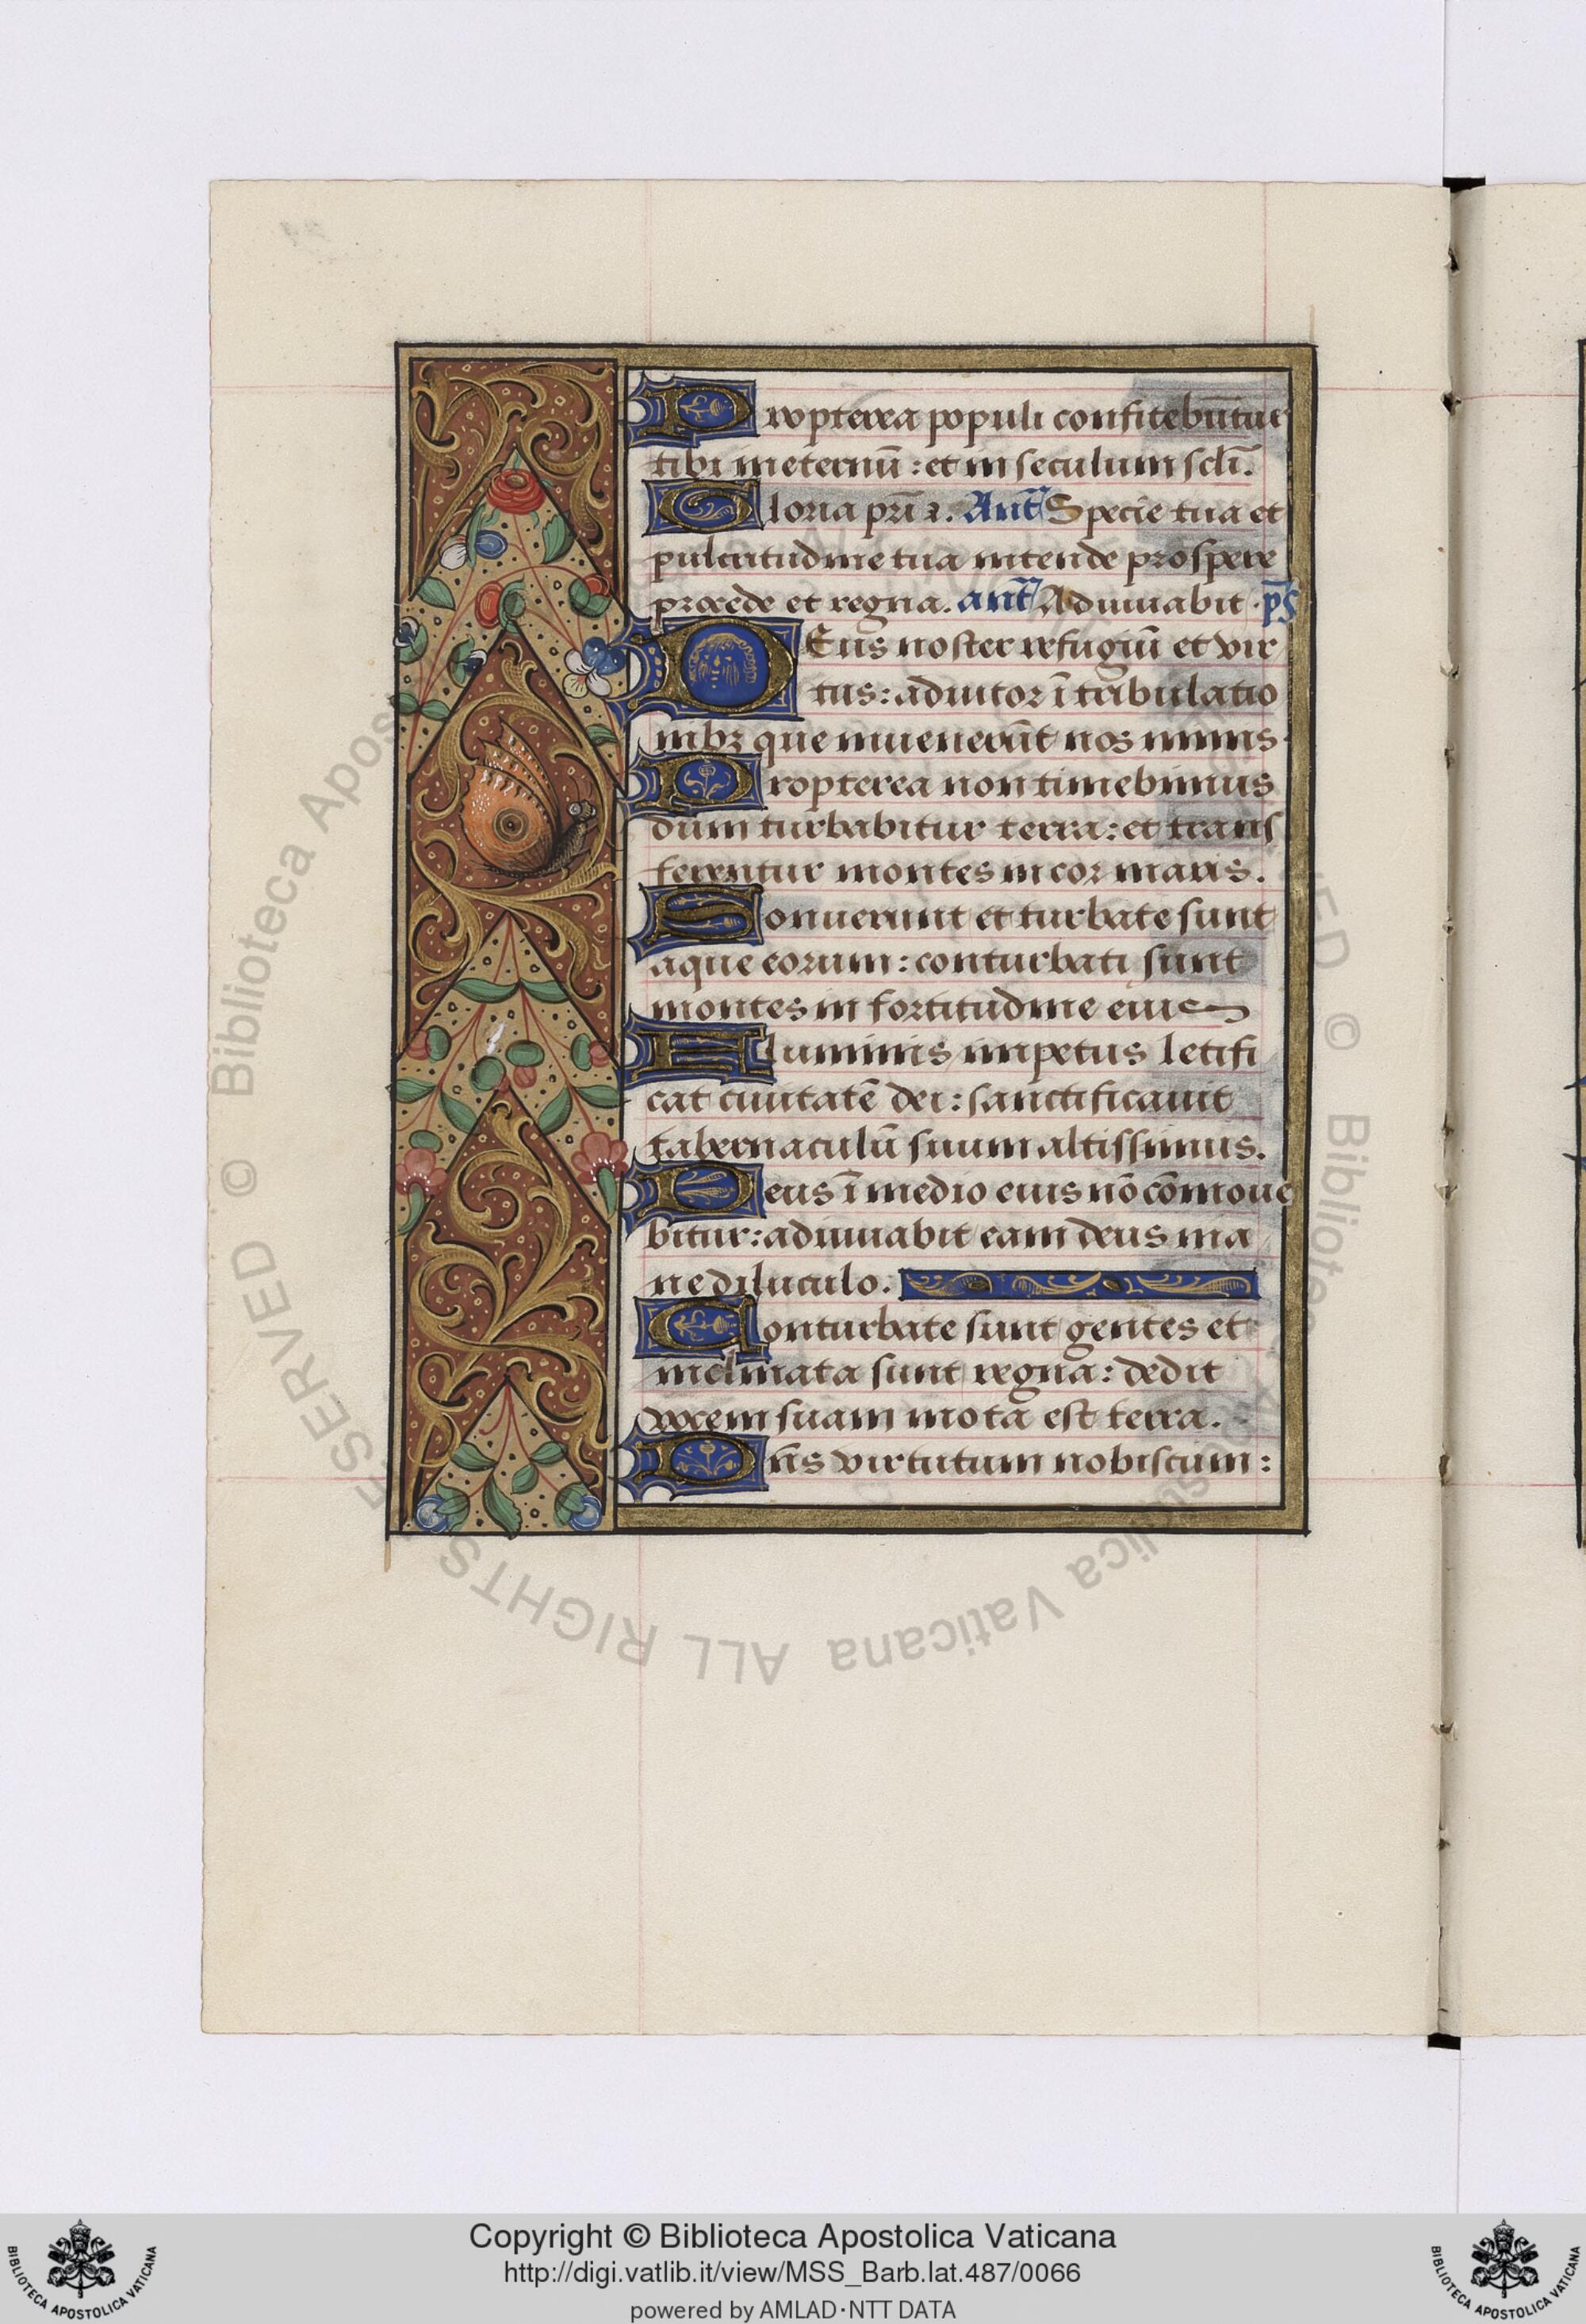 Propterea populi confitebūtur
tibi in eternū : et in seculum scli̅.
Gloria pri̅ ⁊. Ant̅ Specie tua et
pulcritudine tua intende prospere
procede et regna. ant̅ Adiuuabit . ps̅
DEus noster refugiū et vir
tus : adiutor ī tribulatio
nibꝫ que inuenerūt nos nimis.
Propterea non timebimus
dum turbabitur terra : et trans
ferentur montes in cor maris.
Sonuerunt et turbate sunt
aque eorum : conturbati sunt
montes in fortitudine eius
Fluminis impetus letifi
cat ciuitatē dei : sanctificauit
tabernaculū suum altissimus.
Deus ī medio eius nō cōmoue
bitur : adiuuabit eam deus ma
ne diluculo.
Conturbate sunt gentes et
inclinata sunt regna : dedit
vocem suam mota est terra.
Dn̅s virtutum nobiscum :
Biblioteca Apostolica Vaticana ALL RIGHTS RESERVED ©
Copyright © Biblioteca Apostolica Vaticana
http://digi.vatlib.it/view/MSS_Barb.lat.487/0066
powered by AMLAD·NTT DATA
BIBLIOTECA APOSTOLICA VATICANA
BIBLIOTECA APOSTOLICA VATICANA